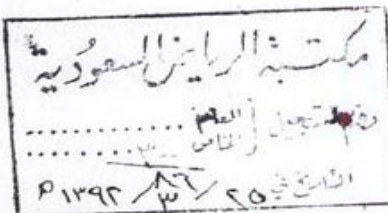 مكتبة الرياض السعودية
رقم التسجيل العام ..........
الخاص ..........
التاريخ في ٢٥ / ٣ / ١٣٩٢ م